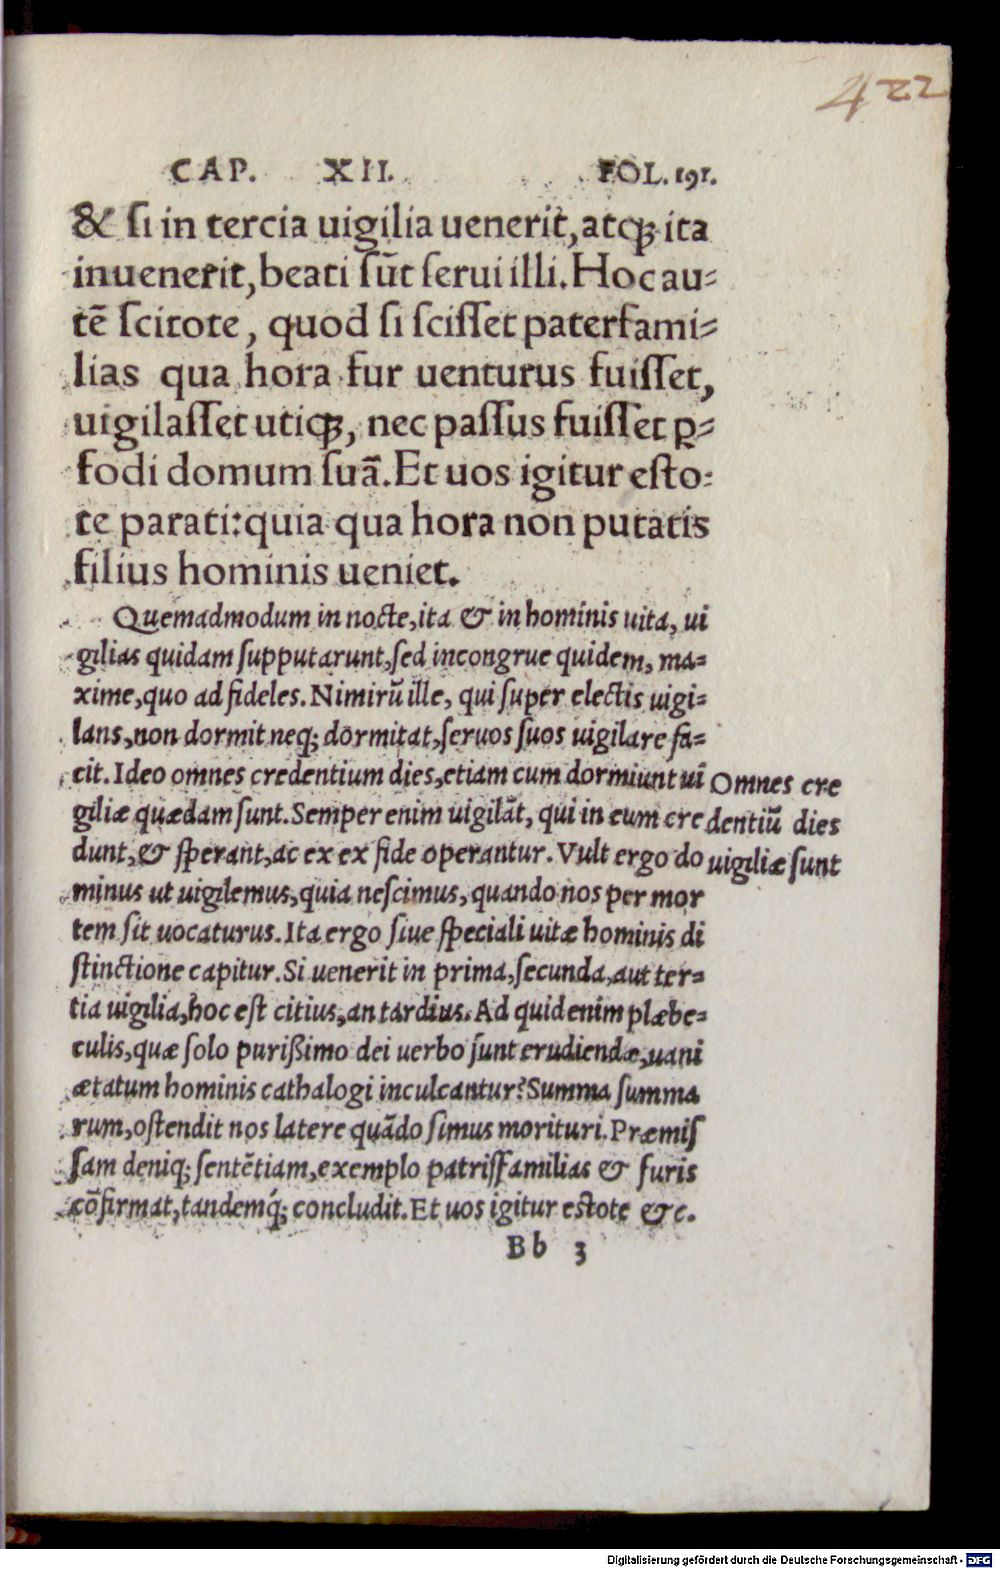 422
CAP. XII. FOL. 191.
& ſi in tercia uigilia uenerit, atqꝫ ita
inuenerit, beati ſūt ſerui illi. Hoc au⸗
tē ſcitote, quod ſi ſciſſet paterfami⸗
lias qua hora fur uenturus fuiſſet,
uigilaſſet utiqꝫ, nec paſſus fuiſſet ꝑ⸗
fodi domum ſuā. Et uos igitur eſto⸗
te parati: quia qua hora non putatis
filius hominis ueniet.
Quemadmodum in nocte, ita & in hominis uita, ui
gilias quidam ſupputarunt, ſed incongrue quidem, ma⸗
xime, quo ad fideles. Nimirū ille, qui ſuper electis uigi⸗
lans, non dormit neqꝫ dormitat, ſeruos ſuos uigilare fa⸗
cit. Ideo omnes credentium dies, etiam cum dormiunt ui
giliæ quædam ſunt. Semper enim uigilāt, qui in eum cre
dunt, & ſperant, ac ex ex fide operantur. Vult ergo do
minus ut uigilemus, quia neſcimus, quando nos per mor
tem ſit uocaturus. Ita ergo ſiue ſpeciali uitæ hominis di
ſtinctione capitur. Si uenerit in prima, ſecunda, aut ter⸗
tia uigilia, hoc eſt citius, an tardius. Ad quid enim plæbe⸗
culis, quæ ſolo purißimo dei uerbo ſunt erudiendæ, uani
ætatum hominis cathalogi inculcantur? Summa ſumma
rum, oſtendit nos latere quādo ſimus morituri. Præmiſ
ſam deniqꝫ ſentētiam, exemplo patriſfamilias & furis
cōfirmat, tandemq́ꝫ concludit. Et uos igitur eſtote &c.
Omnes cre
dentiū dies
uigiliæ ſunt
Bb 3
Digitalisierung gefördert durch die Deutsche Forschungsgemeinschaft - DFG